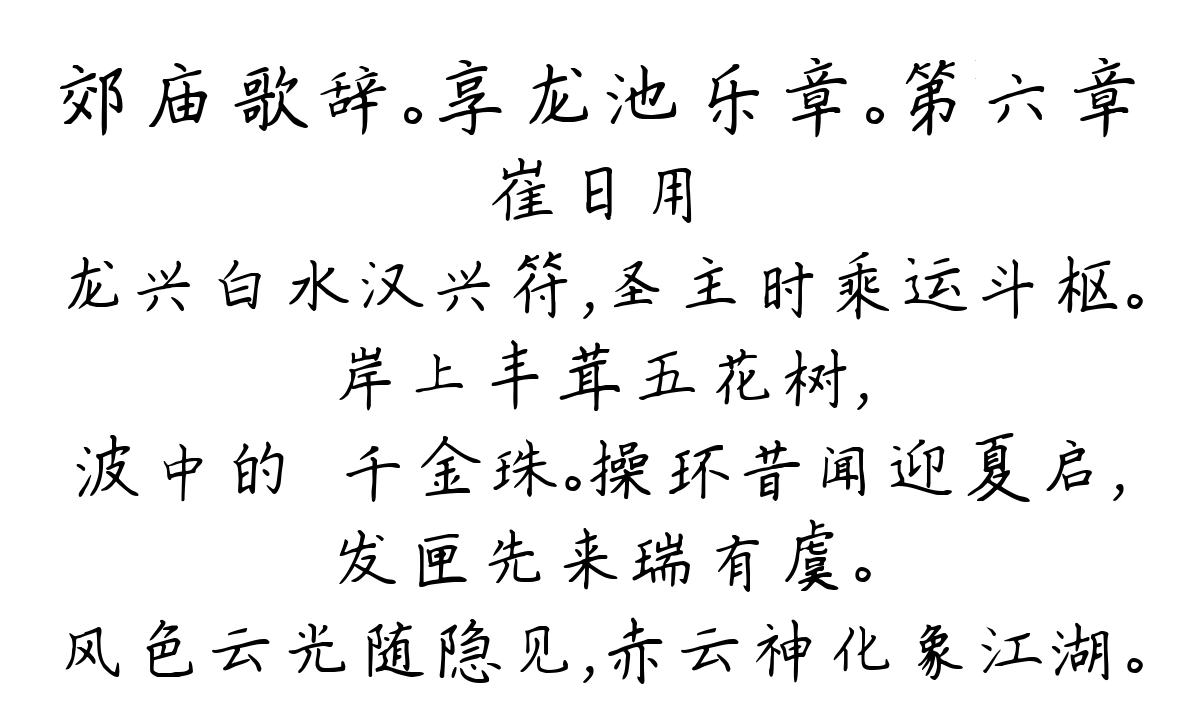 郊庙歌辞。享龙池乐章。第六章
崔日用
龙兴白水汉兴符,圣主时乘运斗枢。
岸上丰茸五花树,
波中的 千金珠。操环昔闻迎夏启,
发匣先来瑞有虞。
风色云光随隐见,赤云神化象江湖。